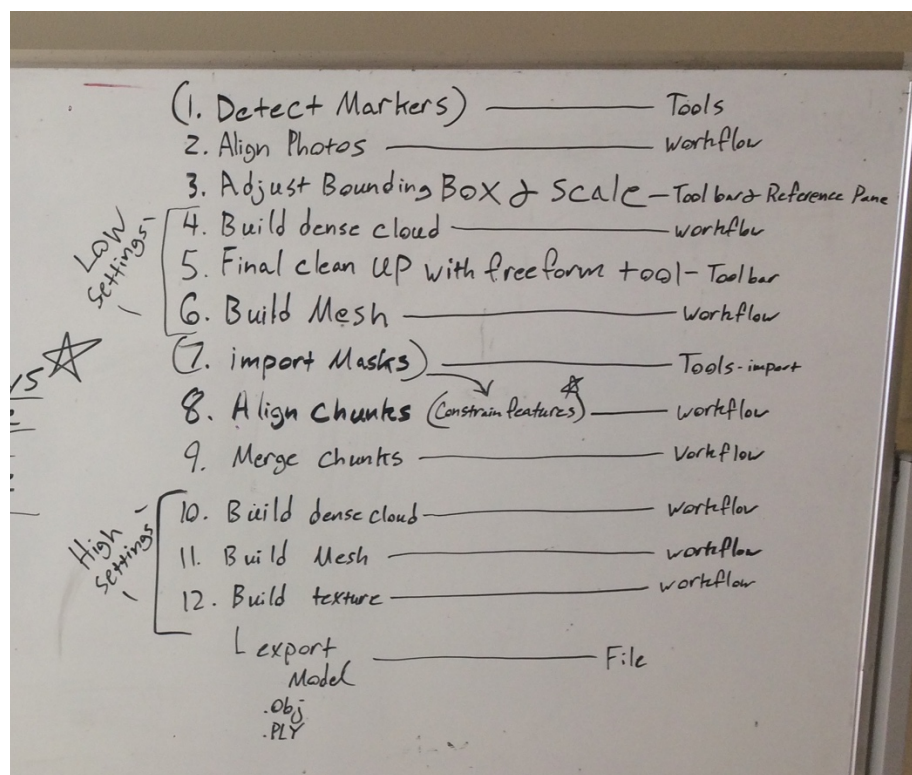 (1. Detect Markers) Tools
2. Align Photos workflow
3. Adjust Bounding Box & Scale - Toolbar & Reference Pane
4. Build dense cloud workflow
5. Final clean up with freeform tool - Toolbar
6. Build Mesh workflow
(7. import Masks) Tools - import
8. Align Chunks (Constrain features) workflow
9. Merge Chunks workflow
10. Build dense cloud workflow
11. Build Mesh workflow
12. Build texture workflow
export File
Model
.Obj
.PLY
Low
Settings
High
Settings